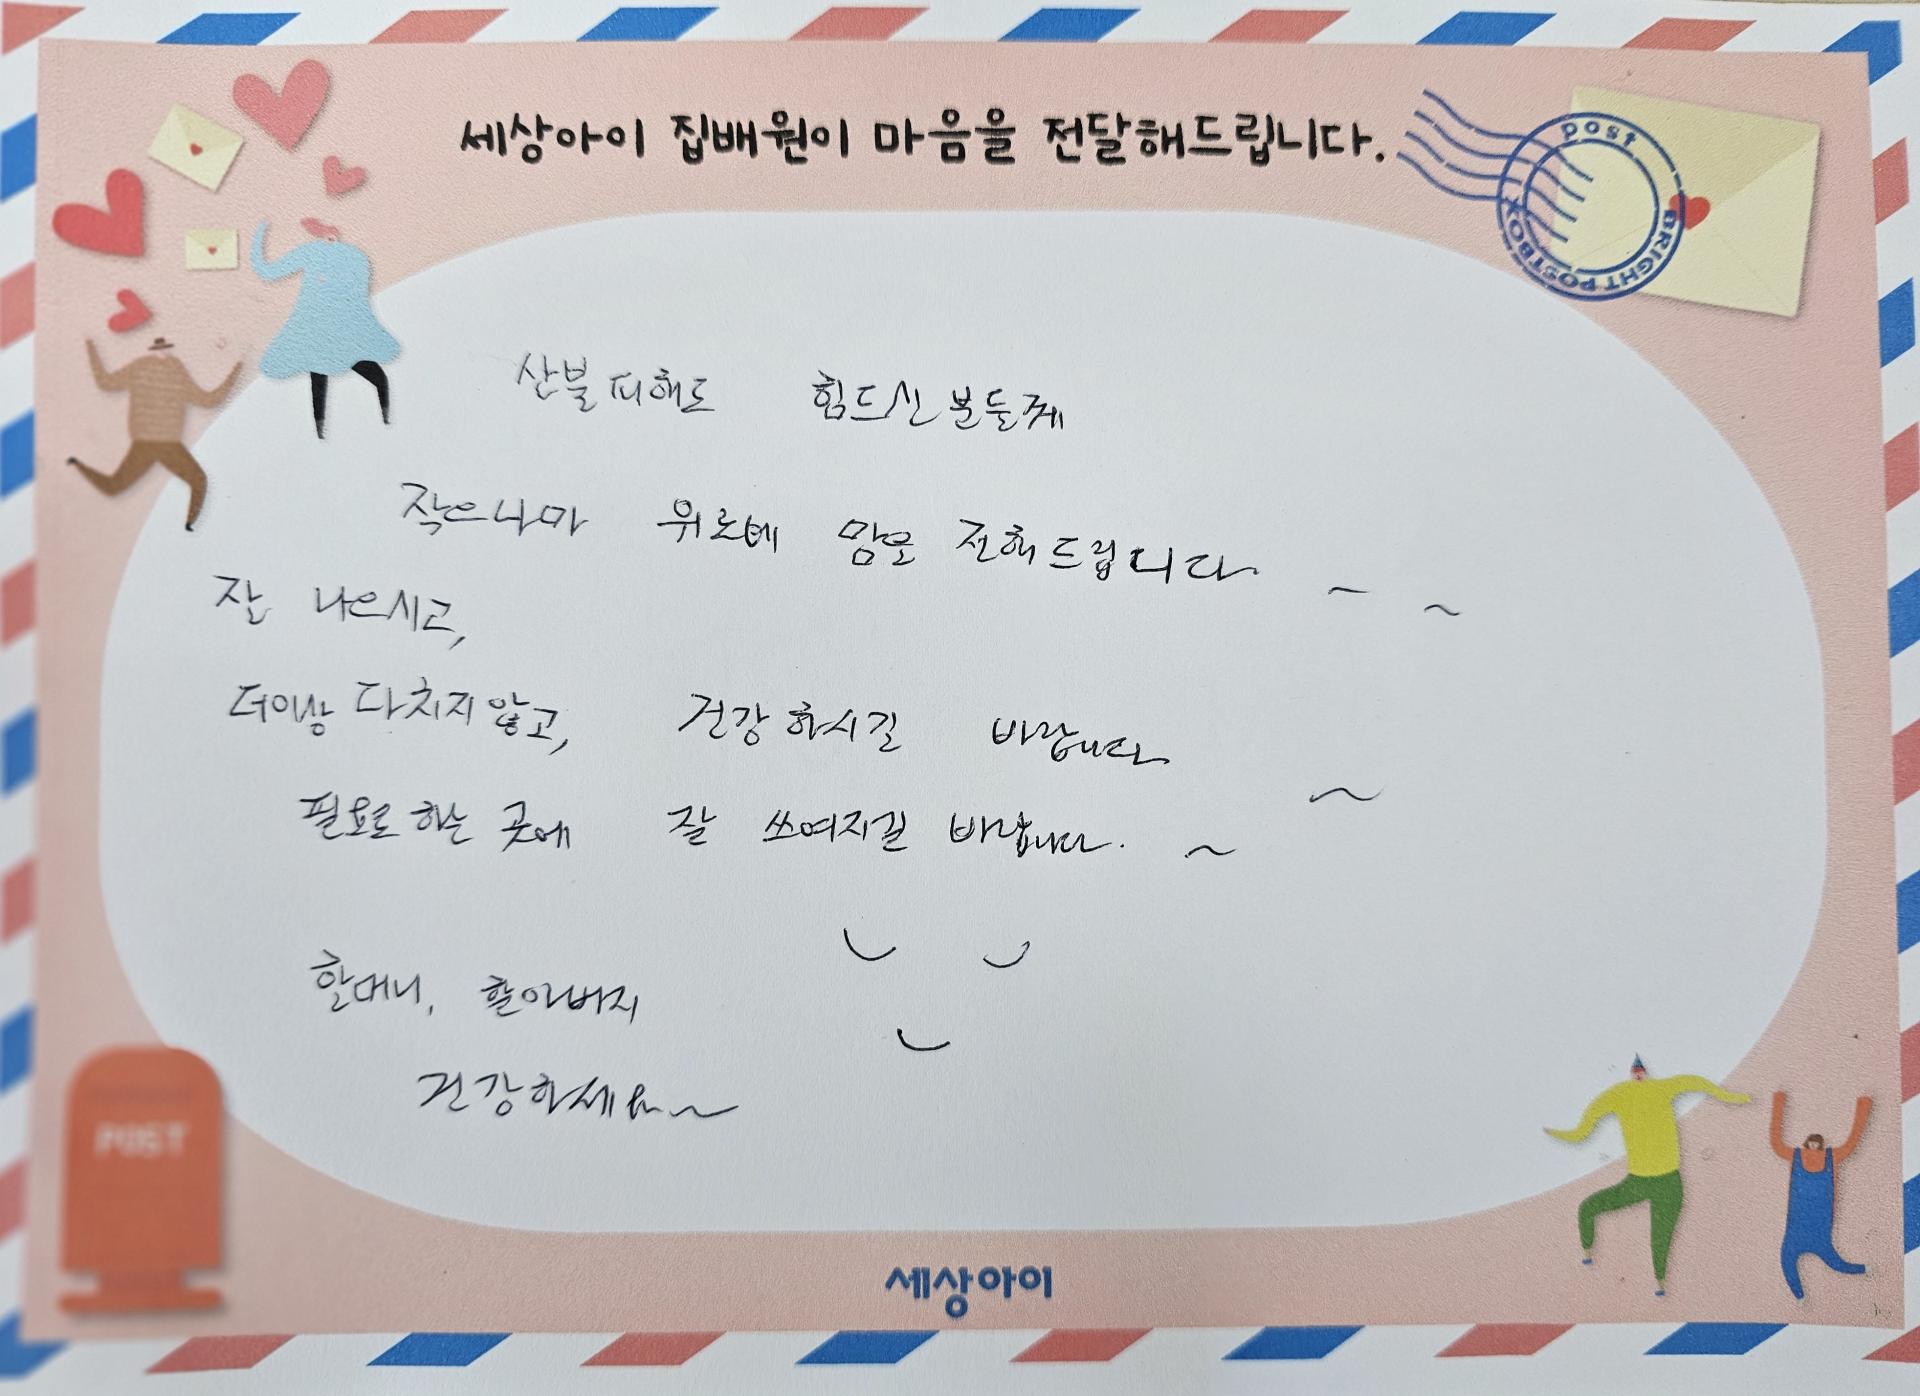 세상아이 집배원이 마음을 전달해드립니다.
post
BRIGHT POSTBOX
산불피해로 힘드신분들께
작으나마 위로에 맘을 전해드립니다. ~ ~
잘 나으시고,
더이상 다치지않고, 건강하시길 바랍니다 ~
필요로 하는 곳에 잘 쓰여지길 바랍니다. ~
할머니, 할아버지
건강하세요~~
POST
세상아이